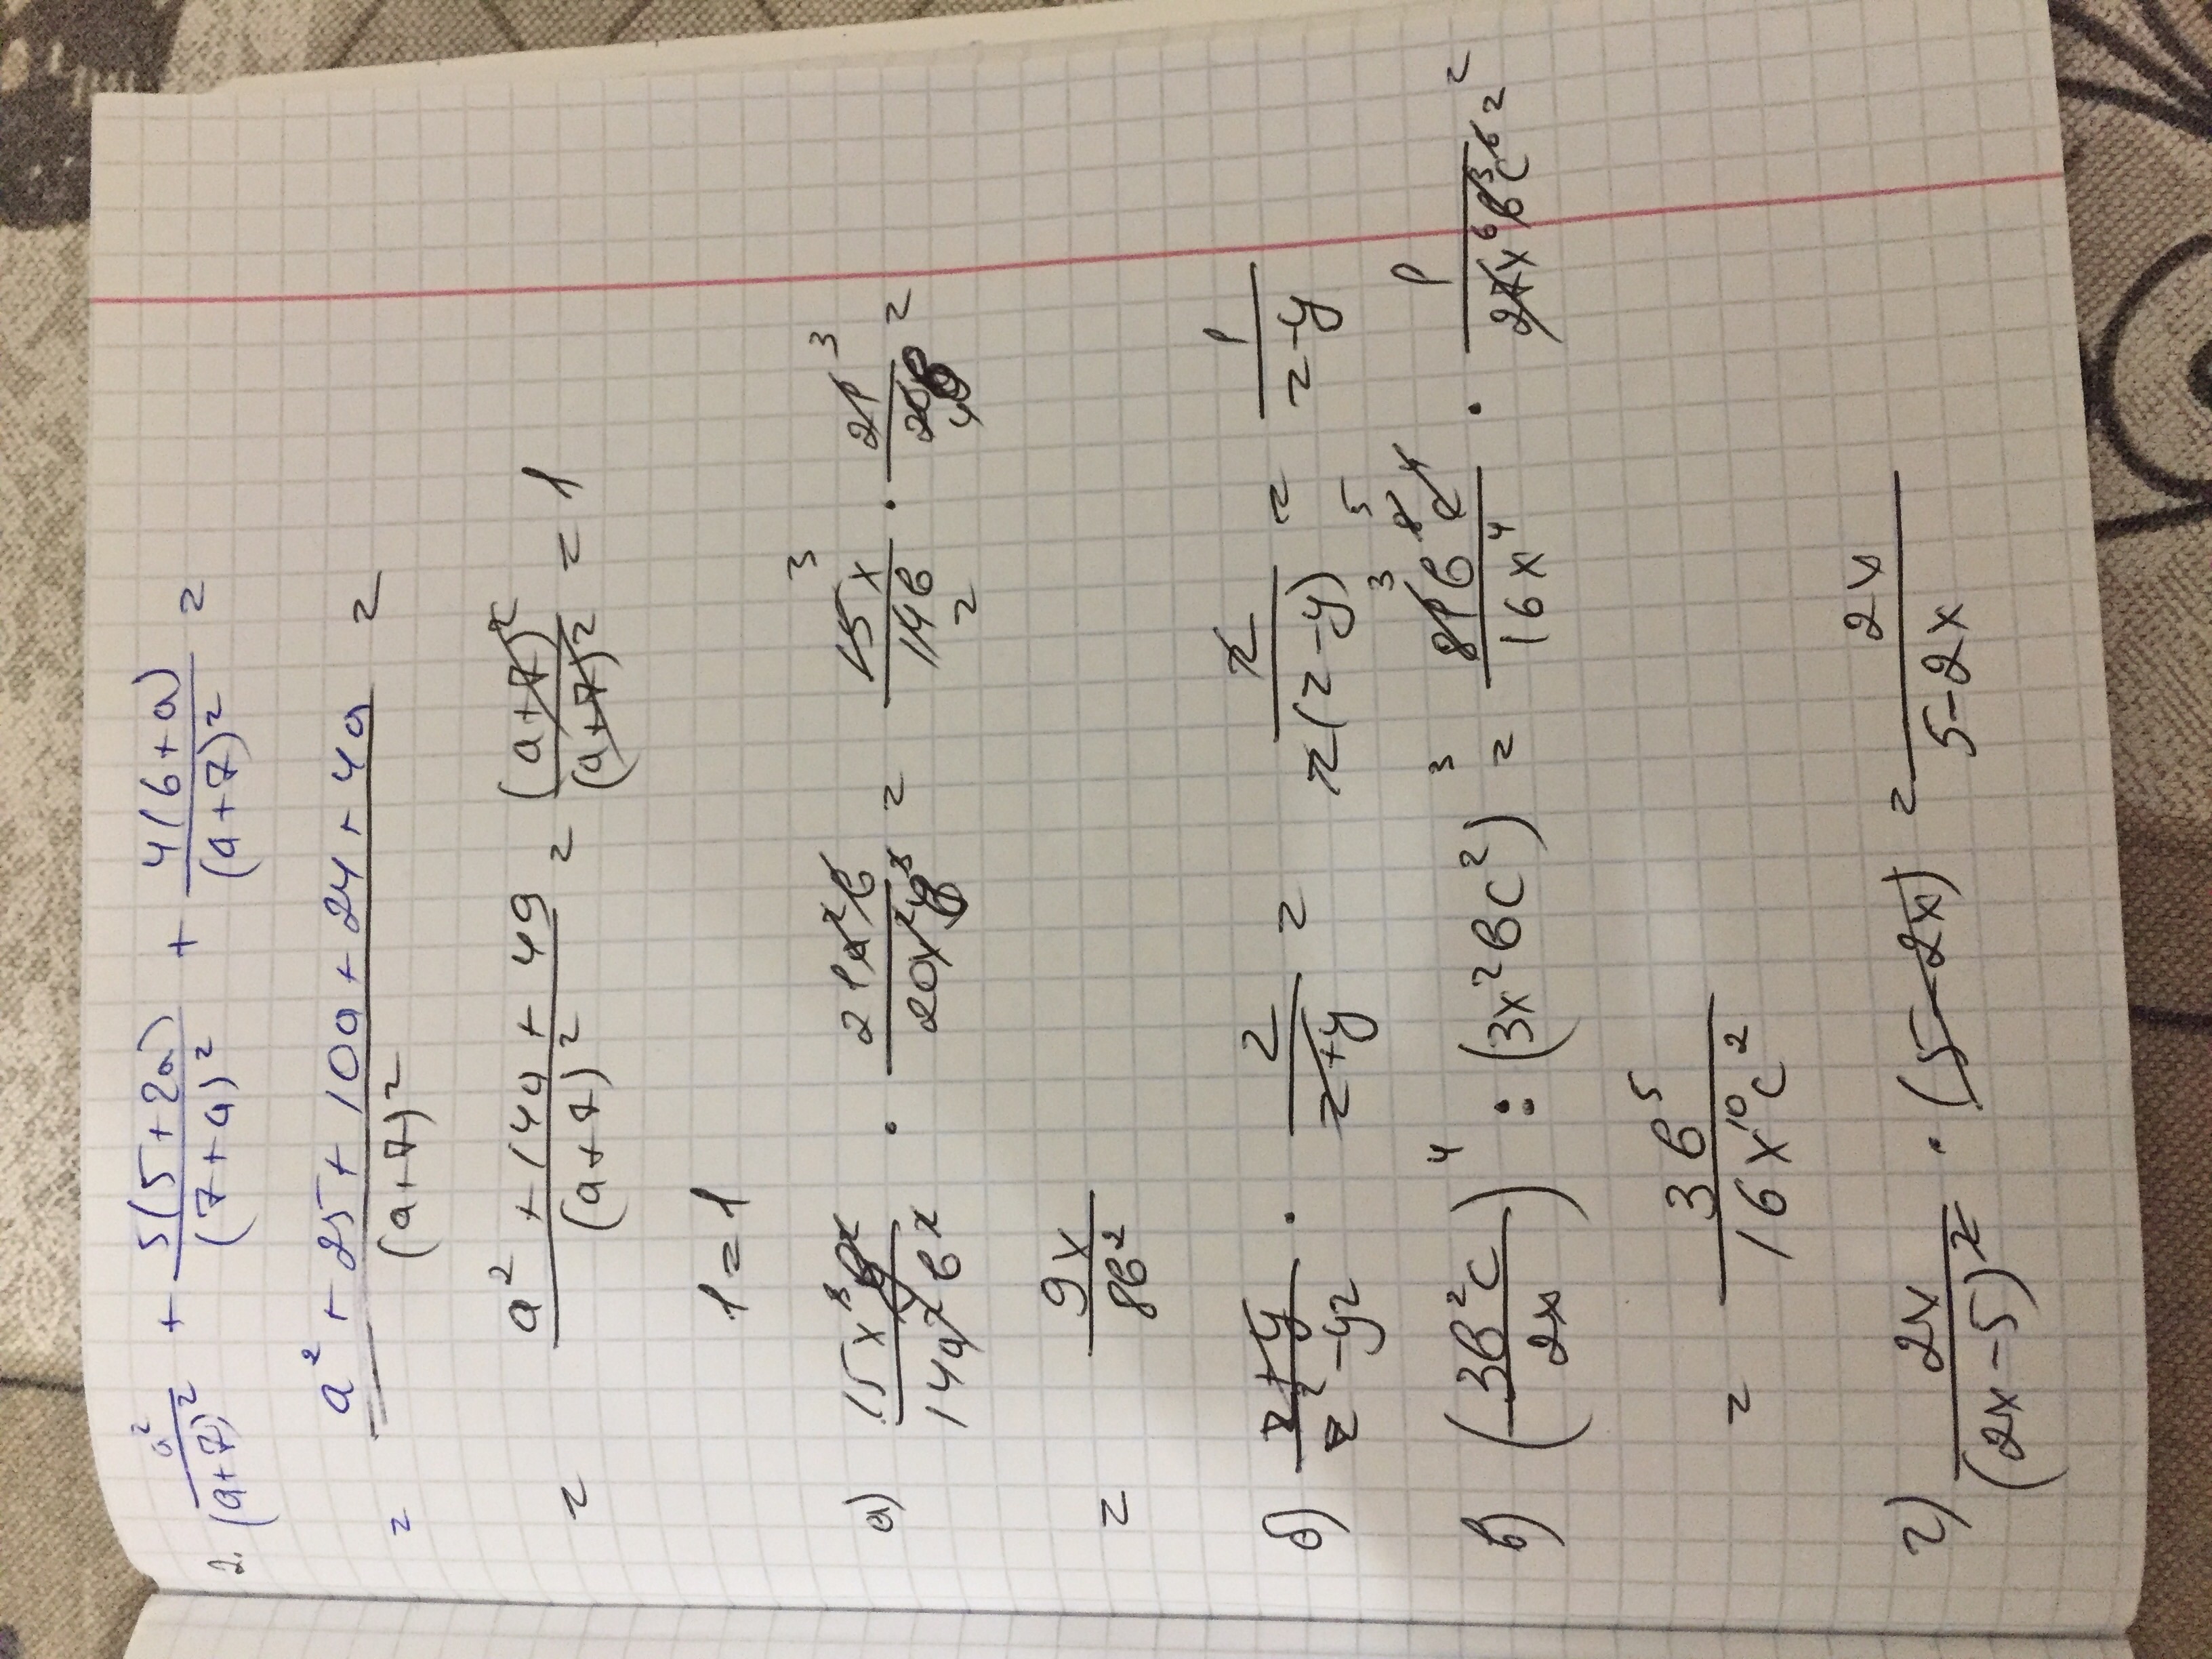 2. a²/(a+7)² + 5(5+2a)/(7+a)² + 4(6+a)/(a+7)² =
= a² + 25 + 10a + 24 + 4a/(a+7)² =
= a² + 14a + 49/(a+7)² = (a+7)²/(a+7)² = 1
1 = 1
а) 15x³ /14a²в · 21a²в/20x²в³ = 15x 3/14в 2 · 21 3/20 4 =
= 9x/8в²
б) z+y/z²-yz · z/z+y = z/z(z-y) = 1/z-y
в) (3в²c/2x)⁴ : (3x²вc²)³ = 81 3 в⁸ 5 c⁴/16x⁴ · 1/27x⁶в³c⁶ 2 =
= 3в⁵/16x¹⁰c²
г) 2x/(2x-5)² · (5-2x) = 2x/5-2x